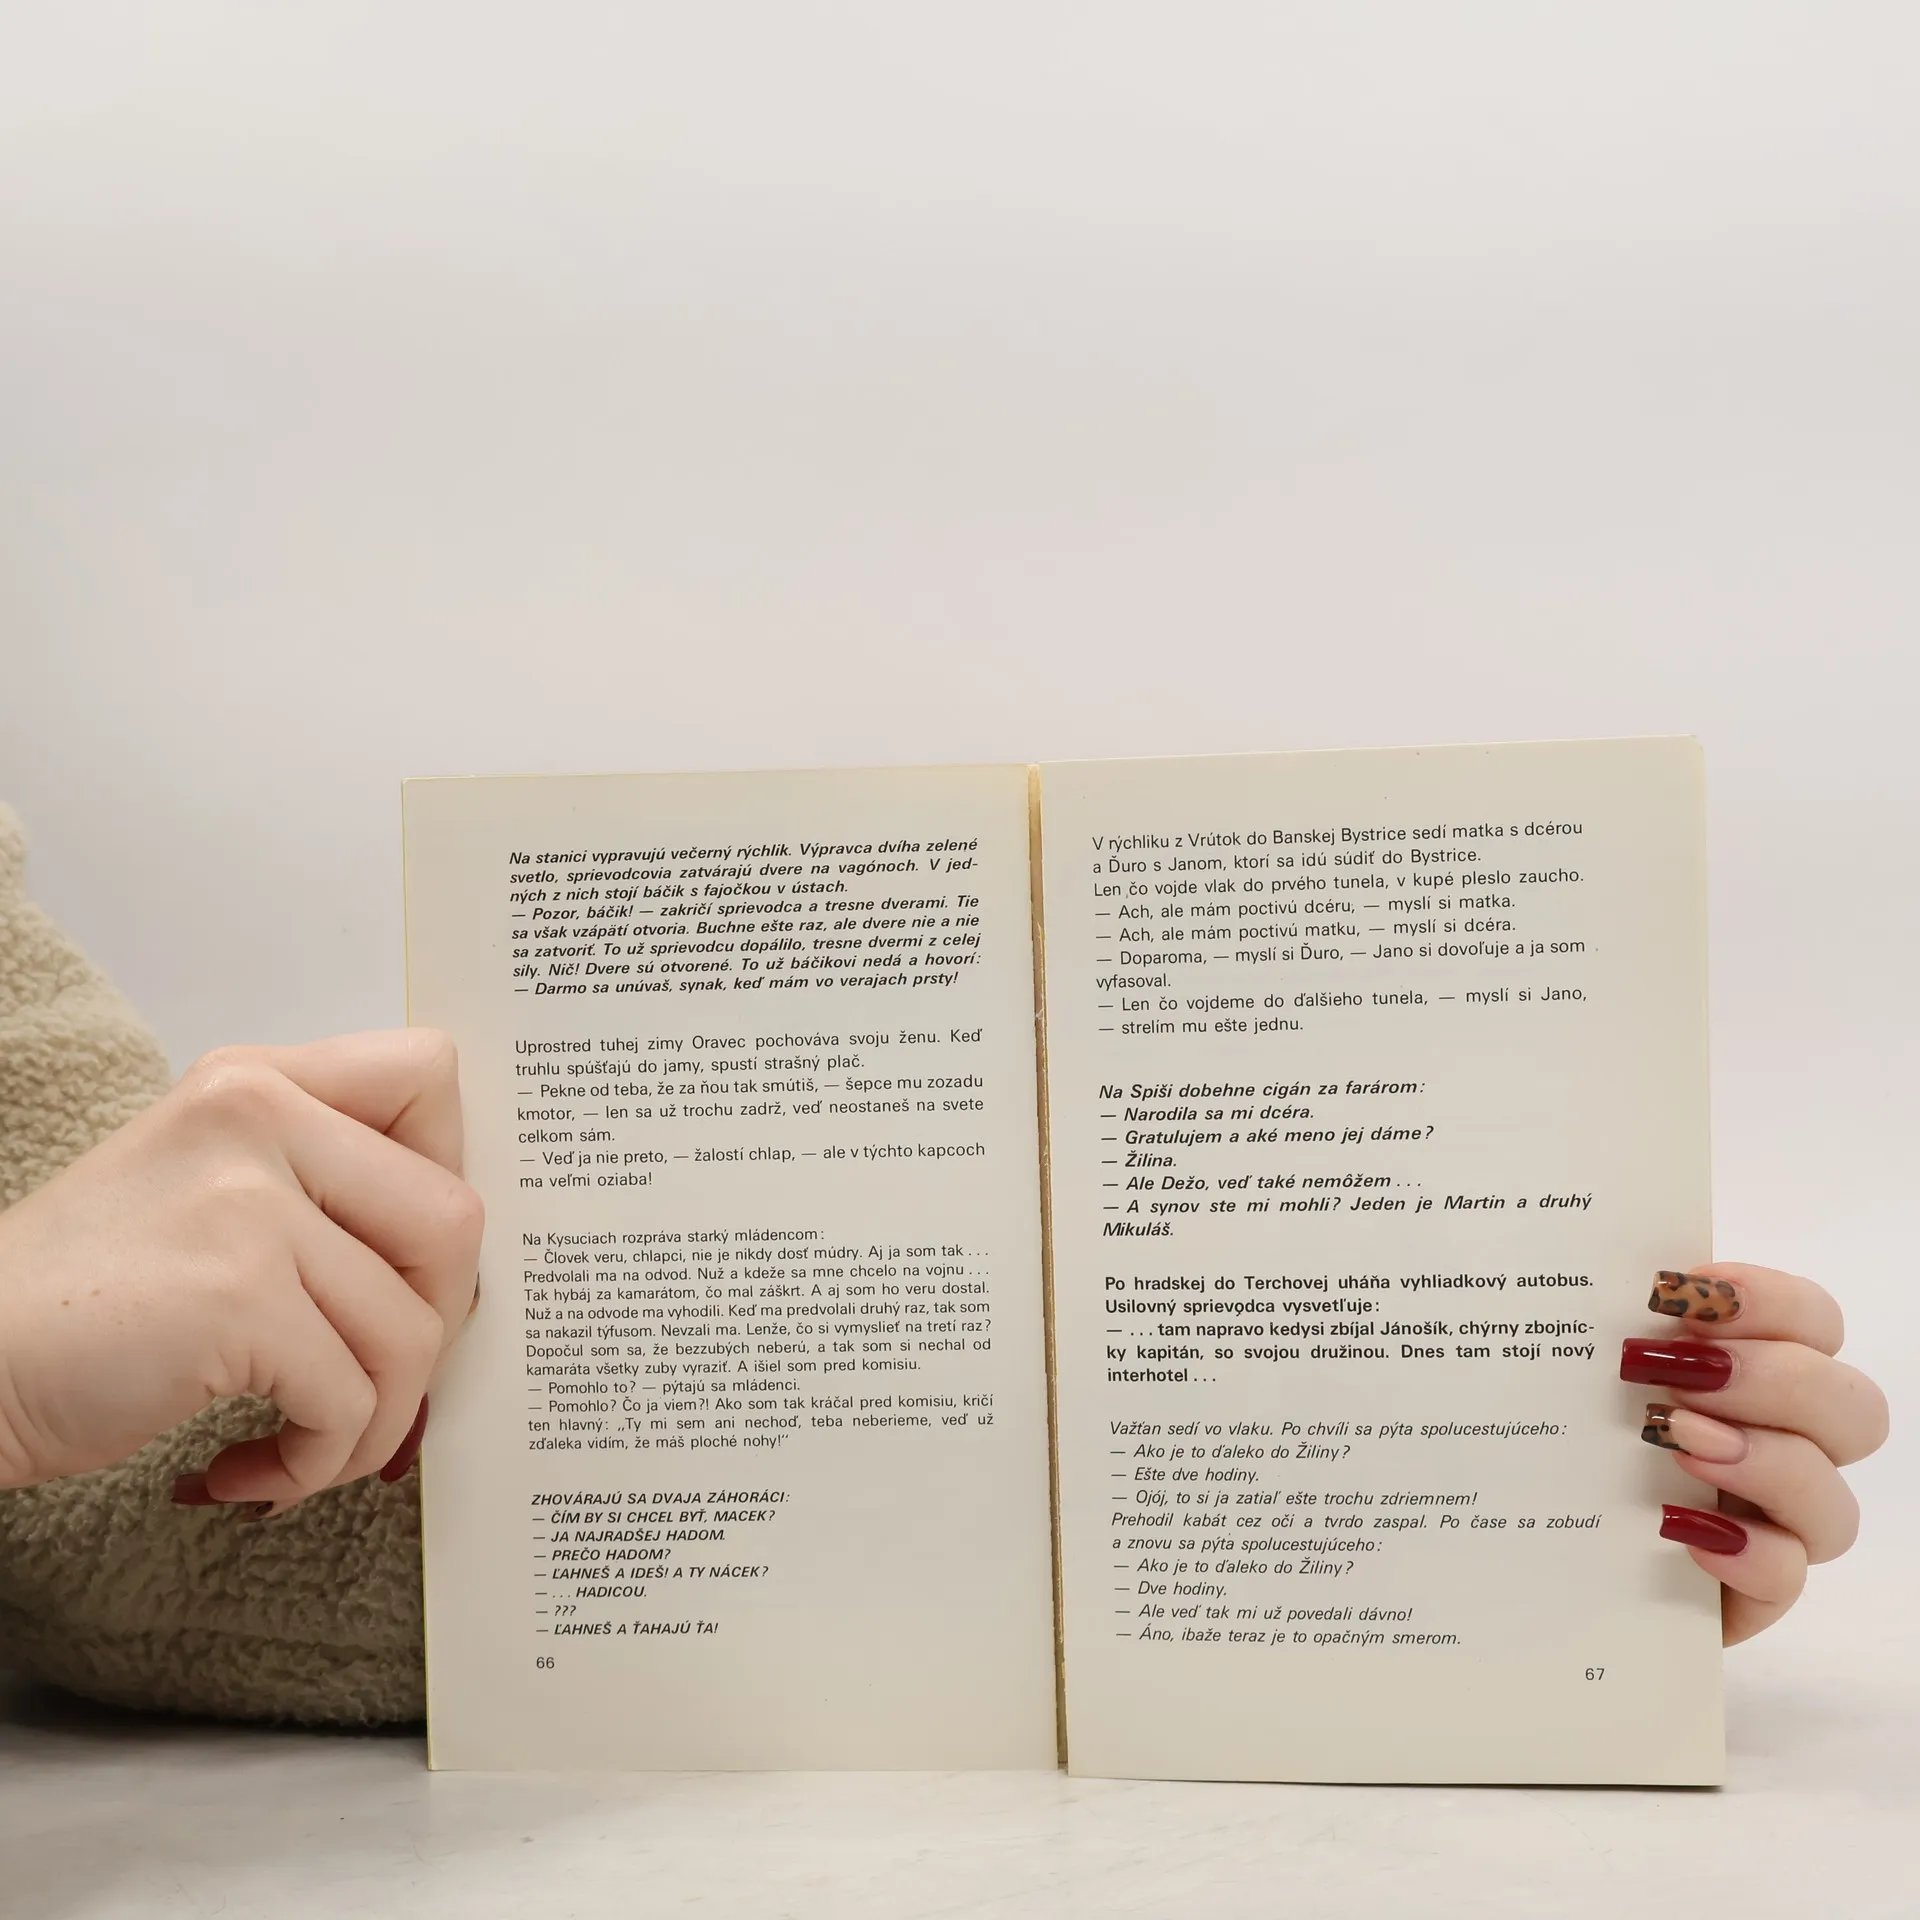 Na stanici vypravujú večerný rýchlik. Výpravca dvíha zelené
svetlo, sprievodcovia zatvárajú dvere na vagónoch. V jed-
ných z nich stojí báčik s fajočkou v ústach.
— Pozor, báčik! — zakričí sprievodca a tresne dverami. Tie
sa však vzápätí otvoria. Buchne ešte raz, ale dvere nie a nie
sa zatvoriť. To už sprievodcu dopálilo, tresne dvermi z celej
sily. Nič! Dvere sú otvorené. To už báčikovi nedá a hovorí:
— Darmo sa unúvaš, synak, keď mám vo verajach prsty!
Uprostred tuhej zimy Oravec pochováva svoju ženu. Keď
truhlu spúšťajú do jamy, spustí strašný plač.
— Pekne od teba, že za ňou tak smútiš, — šepce mu zozadu
kmotor, — len sa už trochu zadrž, veď neostaneš na svete
celkom sám.
— Veď ja nie preto, — žalostí chlap, — ale v týchto kapcoch
ma veľmi oziaba!
Na Kysuciach rozpráva starký mládencom:
— Človek veru, chlapci, nie je nikdy dosť múdry. Aj ja som tak . . .
Predvolali ma na odvod. Nuž a kdeže sa mne chcelo na vojnu . . .
Tak hybáj za kamarátom, čo mal záškrt. A aj som ho veru dostal.
Nuž a na odvode ma vyhodili. Keď ma predvolali druhý raz, tak som
sa nakazil týfusom. Nevzali ma. Lenže, čo si vymyslieť na tretí raz?
Dopočul som sa, že bezzubých neberú, a tak som si nechal od
kamaráta všetky zuby vyraziť. A išiel som pred komisiu.
— Pomohlo to? — pýtajú sa mládenci.
— Pomohlo? Čo ja viem?! Ako som tak kráčal pred komisiu, kričí
ten hlavný: „Ty mi sem ani nechoď, teba neberieme, veď už
zďaleka vidím, že máš ploché nohy!“
ZHOVÁRAJÚ SA DVAJA ZÁHORÁCI:
— ČÍM BY SI CHCEL BYŤ, MACEK?
— JA NAJRADŠEJ HADOM.
— PREČO HADOM?
— ĽAHNEŠ A IDEŠ! A TY NÁCEK?
— . . . HADICOU.
— ???
— ĽAHNEŠ A ŤAHAJÚ ŤA!
66
V rýchliku z Vrútok do Banskej Bystrice sedí matka s dcérou
a Ďuro s Janom, ktorí sa idú súdiť do Bystrice.
Len čo vojde vlak do prvého tunela, v kupé pleslo zaucho.
— Ach, ale mám poctivú dcéru, — myslí si matka.
— Ach, ale mám poctivú matku, — myslí si dcéra.
— Doparoma, — myslí si Ďuro, — Jano si dovoľuje a ja som
vyfasoval.
— Len čo vojdeme do ďalšieho tunela, — myslí si Jano,
— strelím mu ešte jednu.
Na Spiši dobehne cigán za farárom:
— Narodila sa mi dcéra.
— Gratulujem a aké meno jej dáme?
— Žilina.
— Ale Dežo, veď také nemôžem . . .
— A synov ste mi mohli? Jeden je Martin a druhý
Mikuláš.
Po hradskej do Terchovej uháňa vyhliadkový autobus.
Usilovný sprievodca vysvetľuje:
— . . . tam napravo kedysi zbíjal Jánošík, chýrny zbojníc-
ky kapitán, so svojou družinou. Dnes tam stojí nový
interhotel . . .
Važťan sedí vo vlaku. Po chvíli sa pýta spolucestujúceho:
— Ako je to ďaleko do Žiliny?
— Ešte dve hodiny.
— Ojój, to si ja zatiaľ ešte trochu zdriemnem!
Prehodil kabát cez oči a tvrdo zaspal. Po čase sa zobudí
a znovu sa pýta spolucestujúceho:
— Ako je to ďaleko do Žiliny?
— Dve hodiny.
— Ale veď tak mi už povedali dávno!
— Áno, ibaže teraz je to opačným smerom.
67